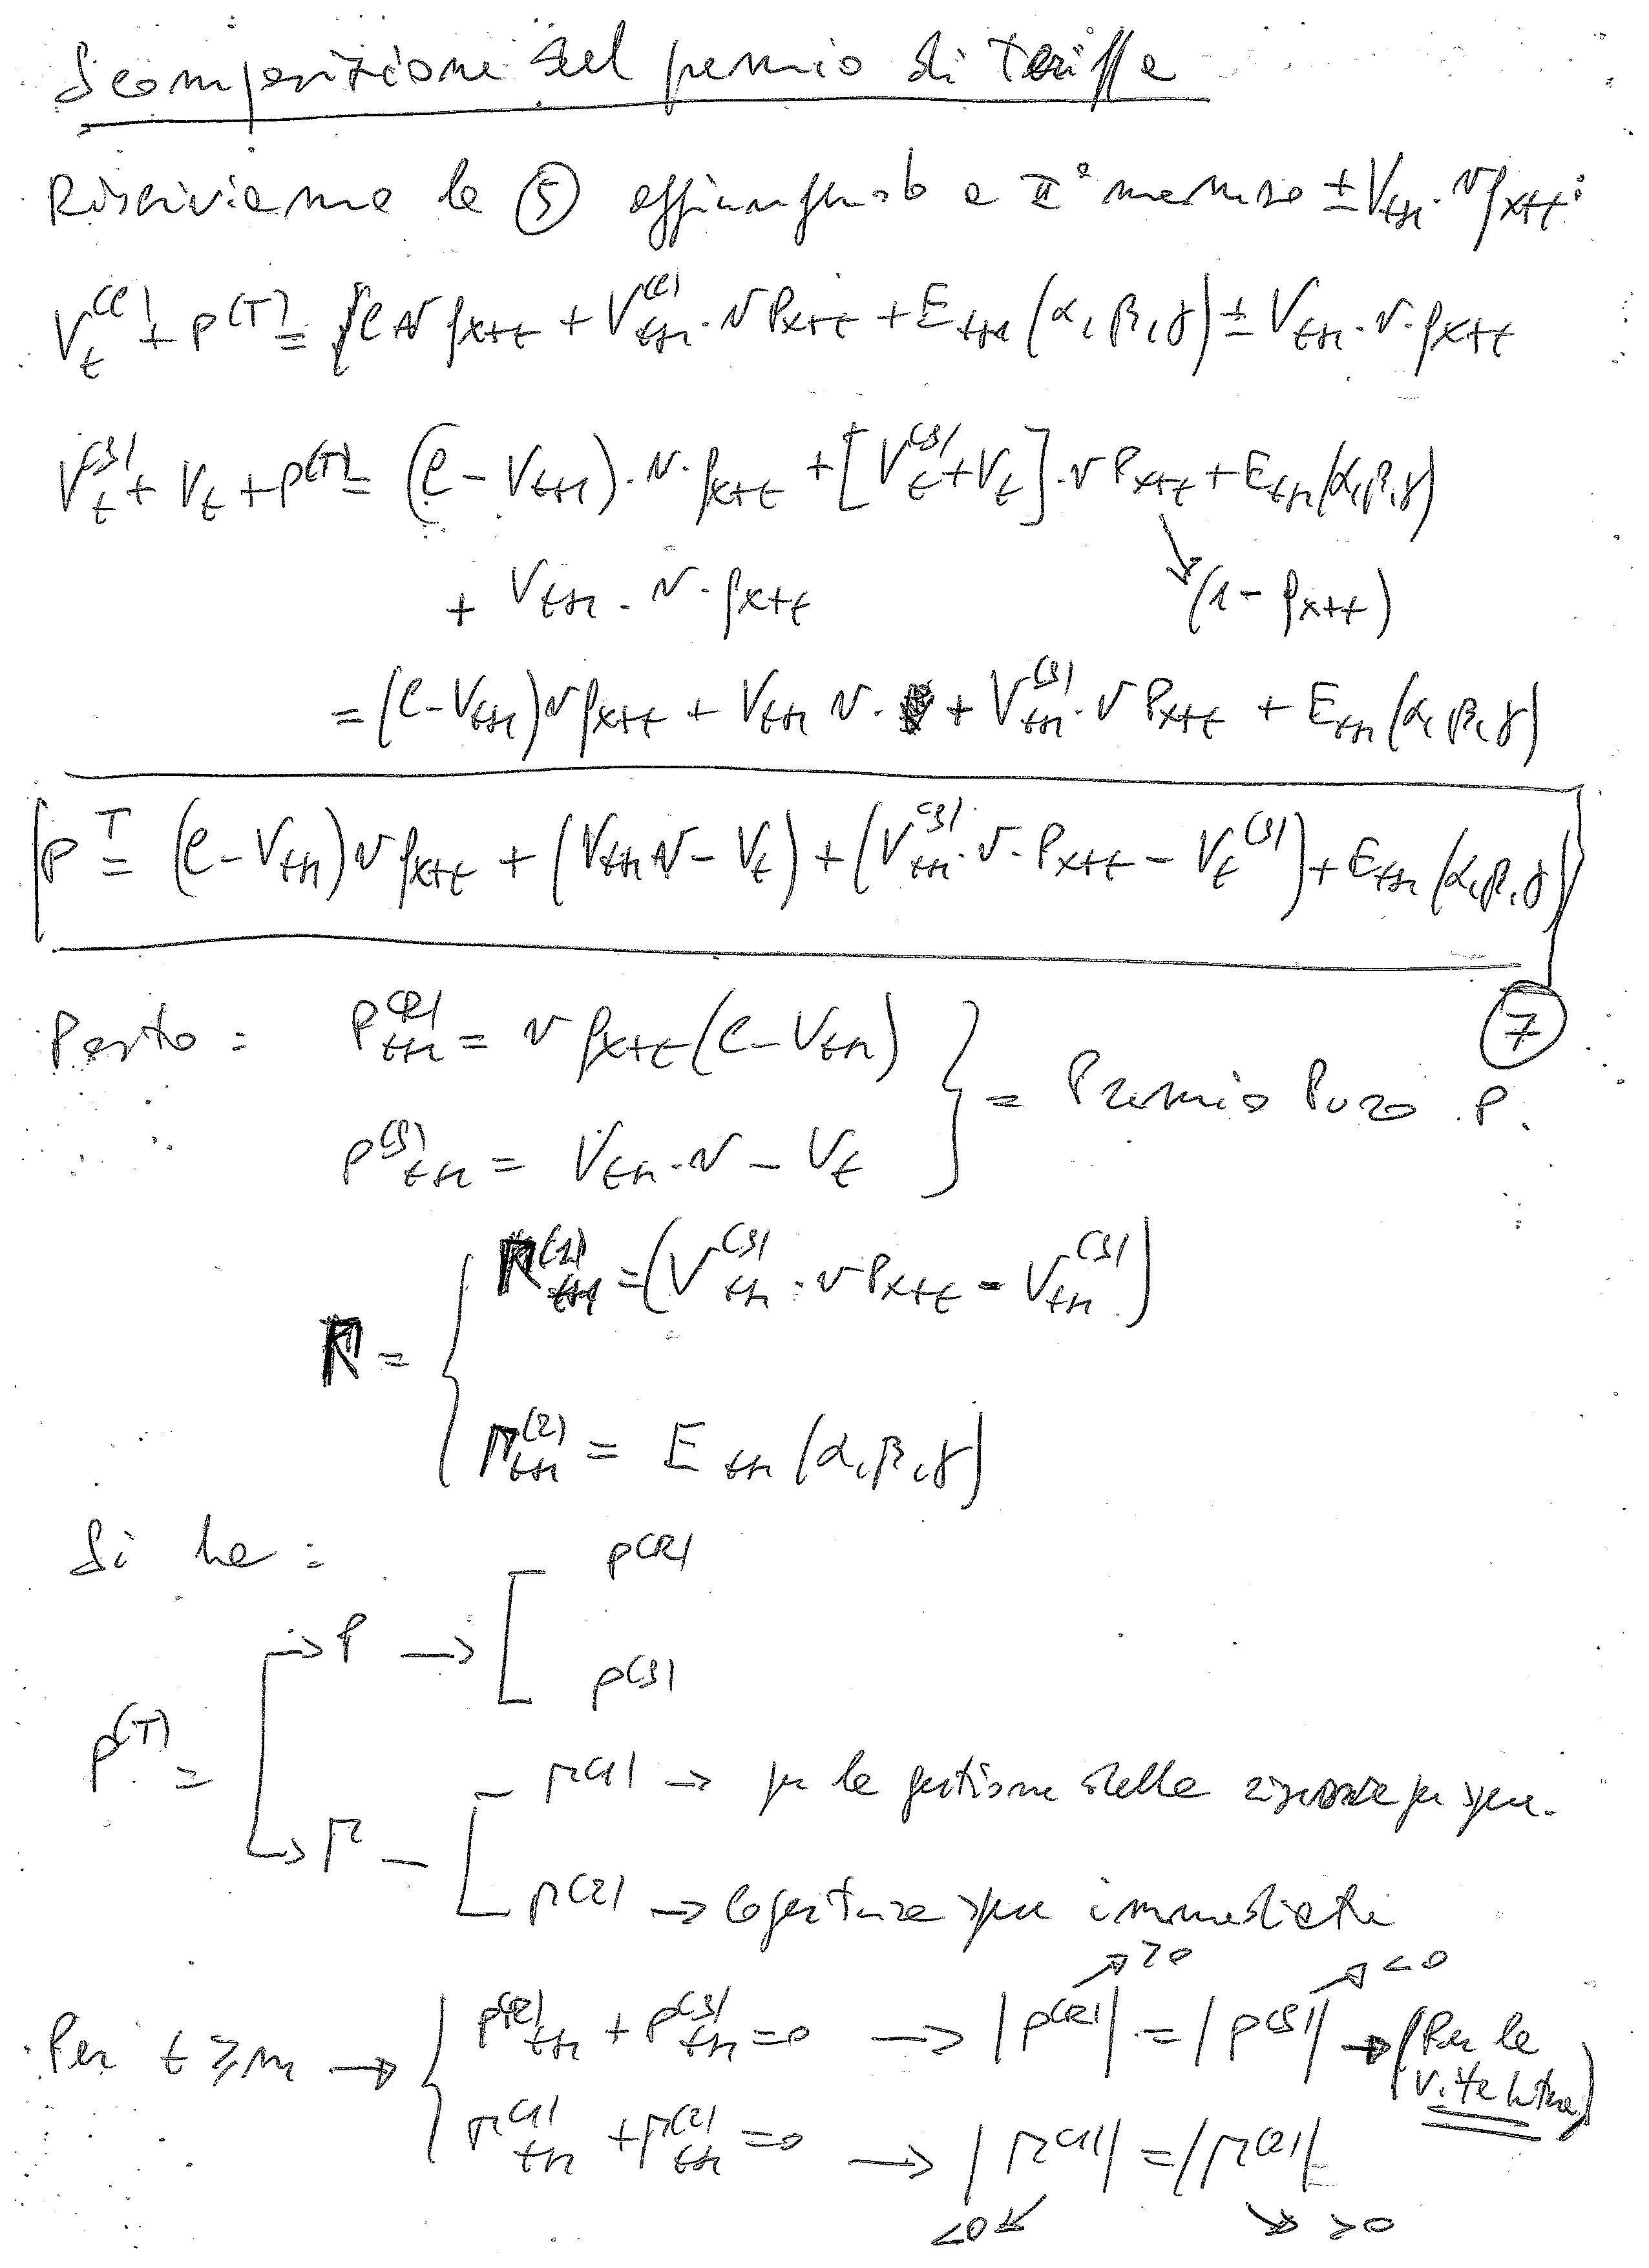 Scomposizione del premio di Tariffa
Riscriviamo la ⑤ aggiungendo a II° membro ± V_{t+1} · v q_{x+t} :
V_t^{(C)} + P^{(T)} = C v q_{x+t} + V_{t+1}^{(C)} · v P_{x+t} + E_{t+1} (α, β, γ) ± V_{t+1} · v · q_{x+t}
V_t^{(S)} + V_t + P^{(T)} = (C - V_{t+1}) · v · q_{x+t} + [V_t^{(S)} + V_t] · v P_{x+t} + E_{t+1} (α, β, γ)
+ V_{t+1} · v · q_{x+t} ↘ (1 - q_{x+t})
= (C - V_{t+1}) v q_{x+t} + V_{t+1} v · + V_{t+1}^{(S)} · v P_{x+t} + E_{t+1} (α, β, γ)
P^T = (C - V_{t+1}) v q_{x+t} + (V_{t+1} v - V_t) + (V_{t+1}^{(S)} · v · P_{x+t} - V_t^{(S)}) + E_{t+1} (α, β, γ)
⑦
Posto : P_{t+1}^{(R)} = v q_{x+t} (C - V_{t+1})
} = Premio Puro P.
P_{t+1}^{(S)} = V_{t+1} · v - V_t
Π_{t+1}^{(1)} = (V_{t+1}^{(S)} · v P_{x+t} - V_{t+1}^{(S)})
Π = {
Π_{t+1}^{(2)} = E_{t+1} (α, β, γ)
Si ha :
P^{(R)}
→ P → [
P^{(S)}
P^{(T)} =
Π^{(1)} → per la gestione delle riserve per spese.
→ Π - [
Π^{(2)} → Copertura spese immediate
>0 <0
Per t ≥ m → { P_{t+1}^{(R)} + P_{t+1}^{(S)} = 0 → |P^{(R)}| = |P^{(S)}| → (Per la vita intera)
Π_{t+1}^{(1)} + Π_{t+1}^{(2)} = 0 → |Π^{(1)}| = |Π^{(2)}|
<0 >0